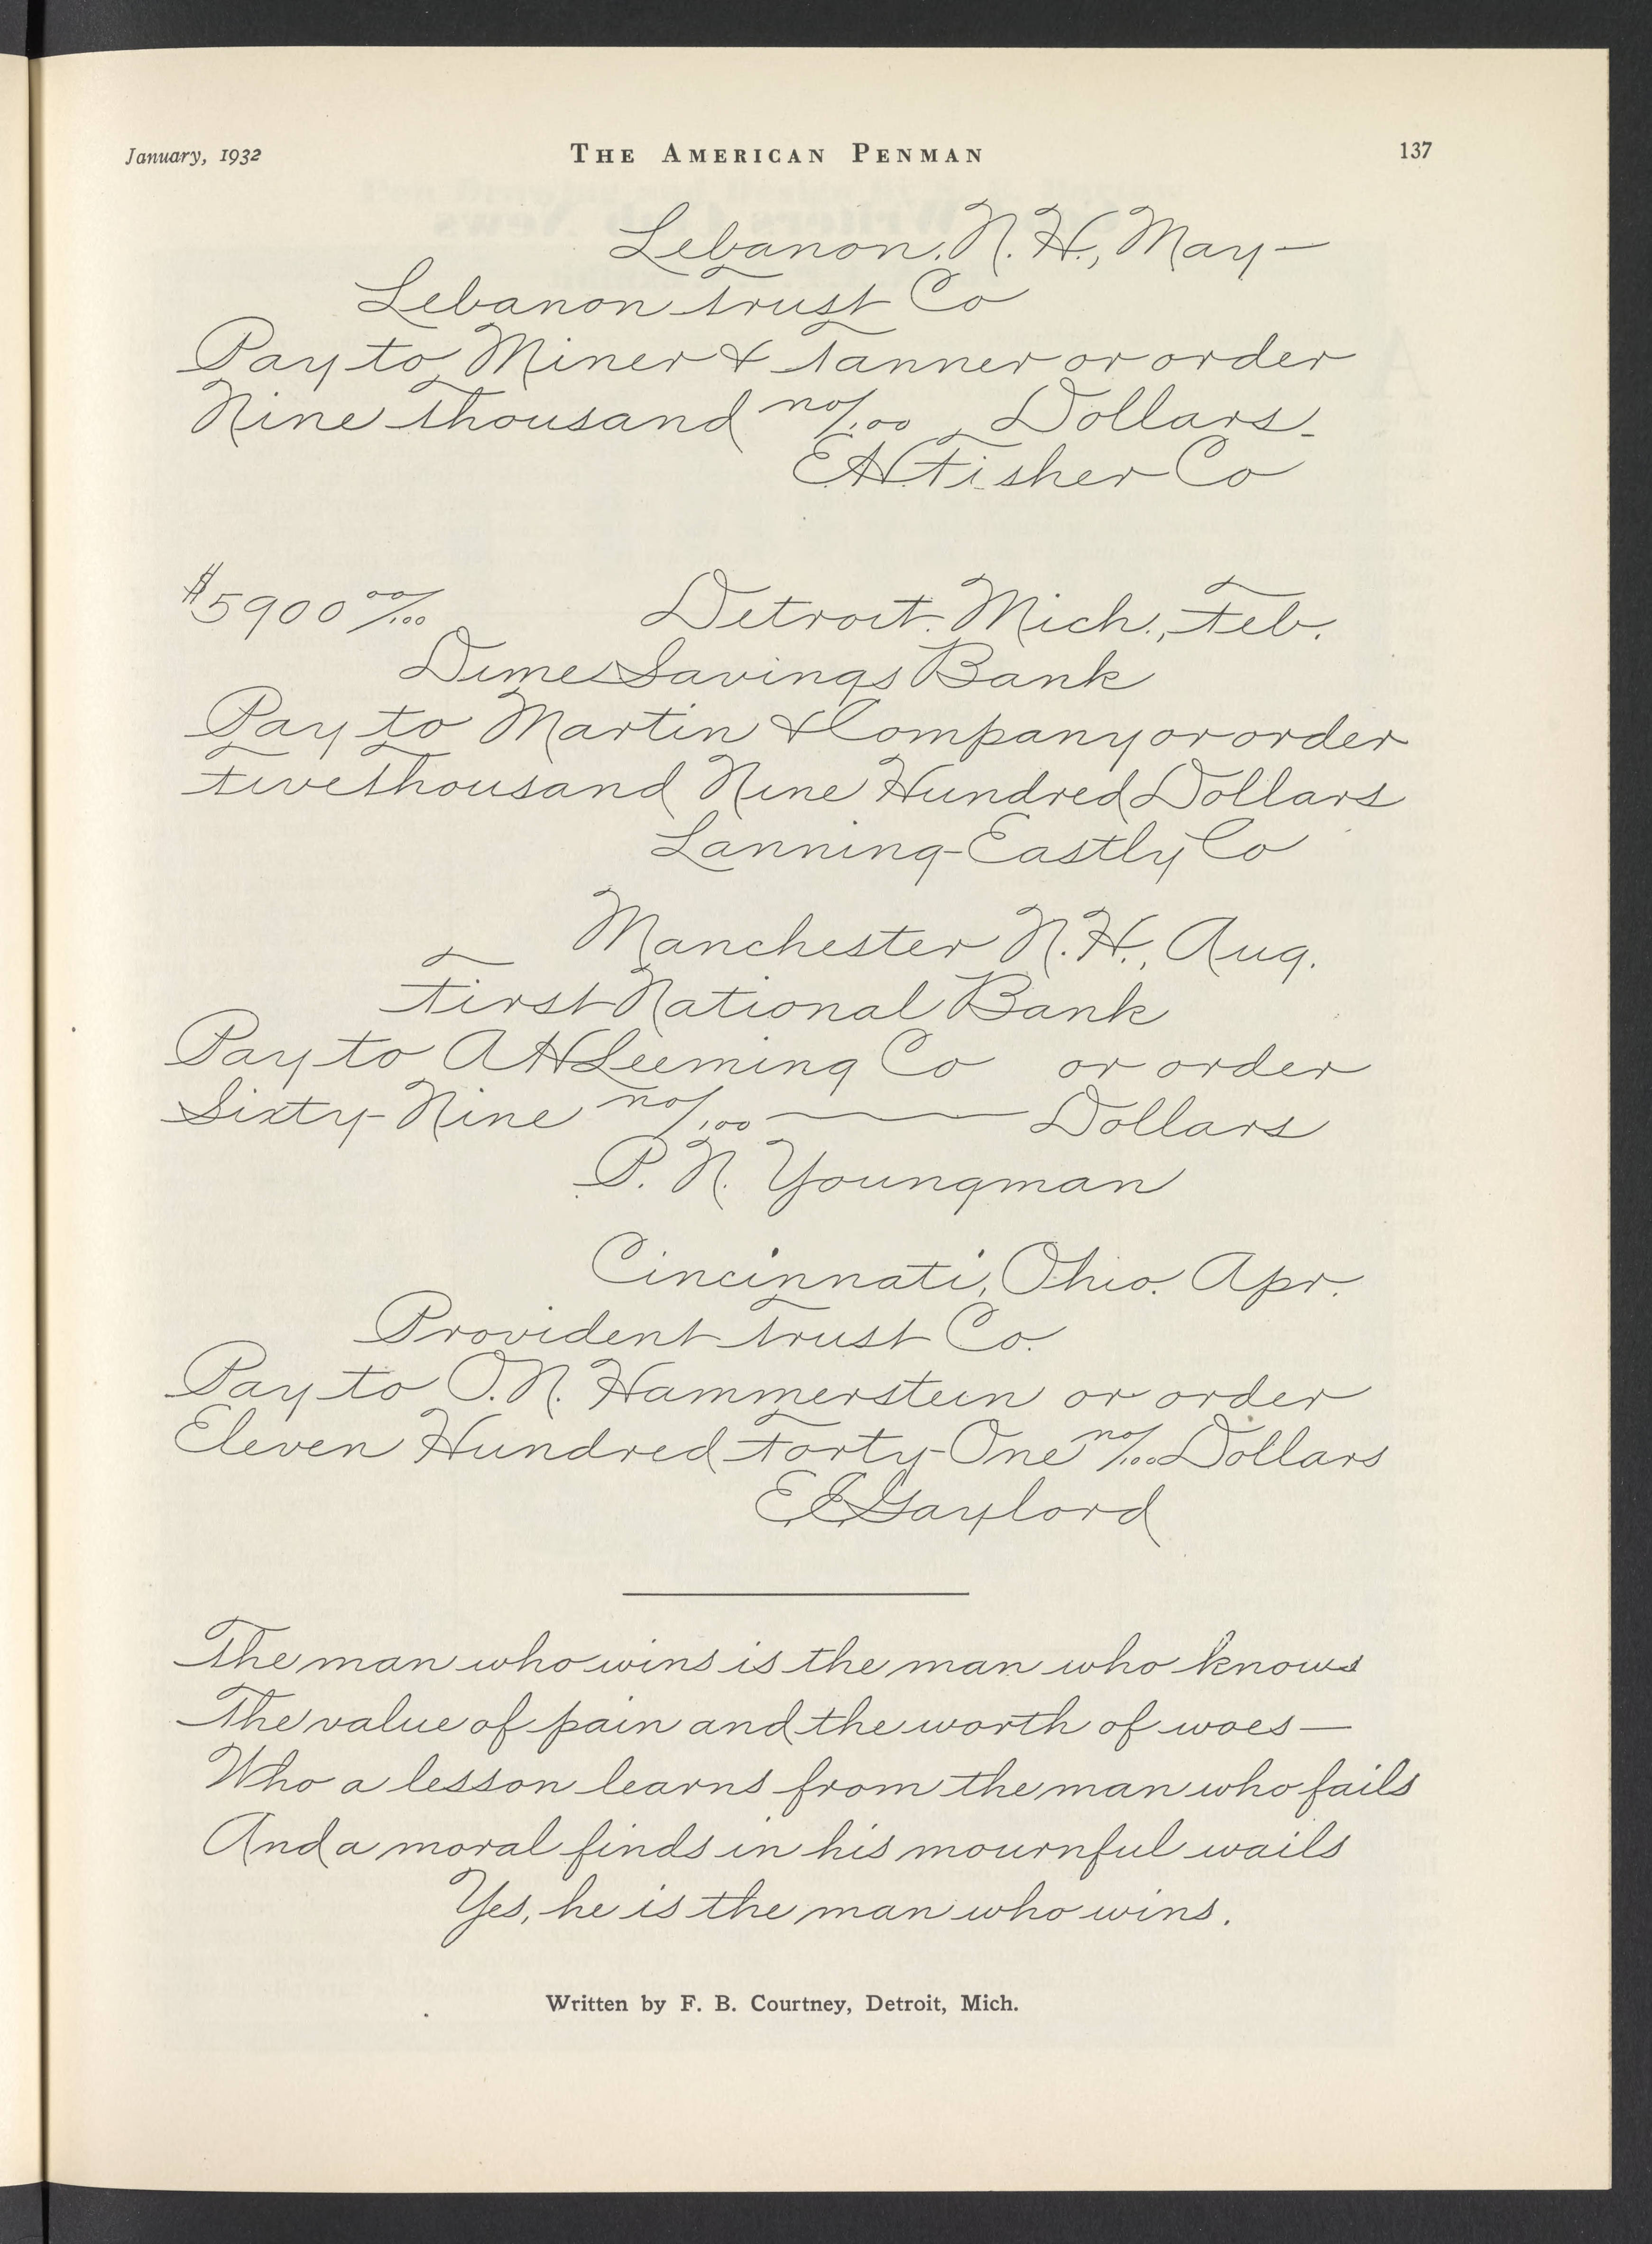 January, 1932 THE AMERICAN PENMAN 137
Lebanon, N. H., May—
Lebanon Trust Co
Pay to Miner & Tanner or order
Nine Thousand no/100 Dollars
E H Fisher Co
$5900 00/100 Detroit. Mich., Feb.
Dime Savings Bank
Pay to Martin & Company or order
Five Thousand Nine Hundred Dollars
Lanning-Eastly Co
Manchester N. H., Aug.
First National Bank
Pay to A H Leeming Co or order
Sixty-Nine no/100 Dollars
P. N. Youngman
Cincinnati, Ohio. Apr.
Provident Trust Co.
Pay to O. N. Hammerstein or order
Eleven Hundred Forty-One no/100 Dollars
E E Gaylord
The man who wins is the man who knows
The value of pain and the worth of woes—
Who a lesson learns from the man who fails
And a moral finds in his mournful wails
Yes, he is the man who wins.
Written by F. B. Courtney, Detroit, Mich.